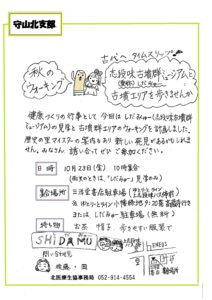 守山北支部
古代へタイムスリップ
秋の
ウォーキング
志段味古墳群ミュージアムと
(愛称)しだみゅー
古墳エリアを歩きませんか
健康づくりの行事として、今回は しだみゅー(志段味古墳群
ミュージアム)の見学と古墳群エリアのウォーキングを計画しました。
歴史の里マイスターの案内もあり 新しい発見があるかもしれま
せん。みなさん 誘い合って ぜひご参加ください。
日時
10月23日(金) 10時集合
(雨天のときは、「しだみゅー」見学のみ)
集合場所
三洋堂書店駐車場
または、しだみゅー駐車場(無料)
持ち物
お茶 帽子 歩きやすい服装で
SHIDAMU
問い合わせ先
後藤・岡
北医療生協事務局 052-914-4554